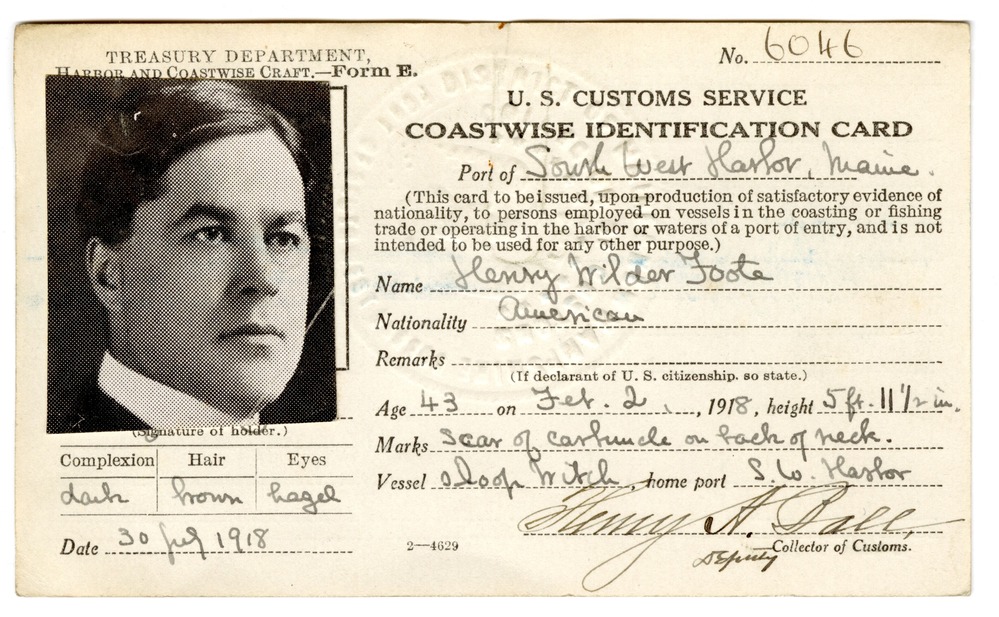 TREASURY DEPARTMENT,
HARBOR AND COASTWISE CRAFT.—Form E.
No. 6046
U. S. CUSTOMS SERVICE
COASTWISE IDENTIFICATION CARD
Port of South West Harbor, Maine.
(This card to be issued, upon production of satisfactory evidence of
nationality, to persons employed on vessels in the coasting or fishing
trade or operating in the harbor or waters of a port of entry, and is not
intended to be used for any other purpose.)
Name Henry Wilder Foote
Nationality American
Remarks
(If declarant of U. S. citizenship, so state.)
Age 43 on Feb. 2, 1918, height 5 ft. 11 1/2 in.
Marks scar of carbuncle on back of neck.
Vessel sloop Witch, home port S.W. Harbor
(Signature of holder.)
Complexion Hair Eyes
dark brown hazel
Date 30 July 1918
2—4629
Henry A. Ball,
Deputy Collector of Customs.